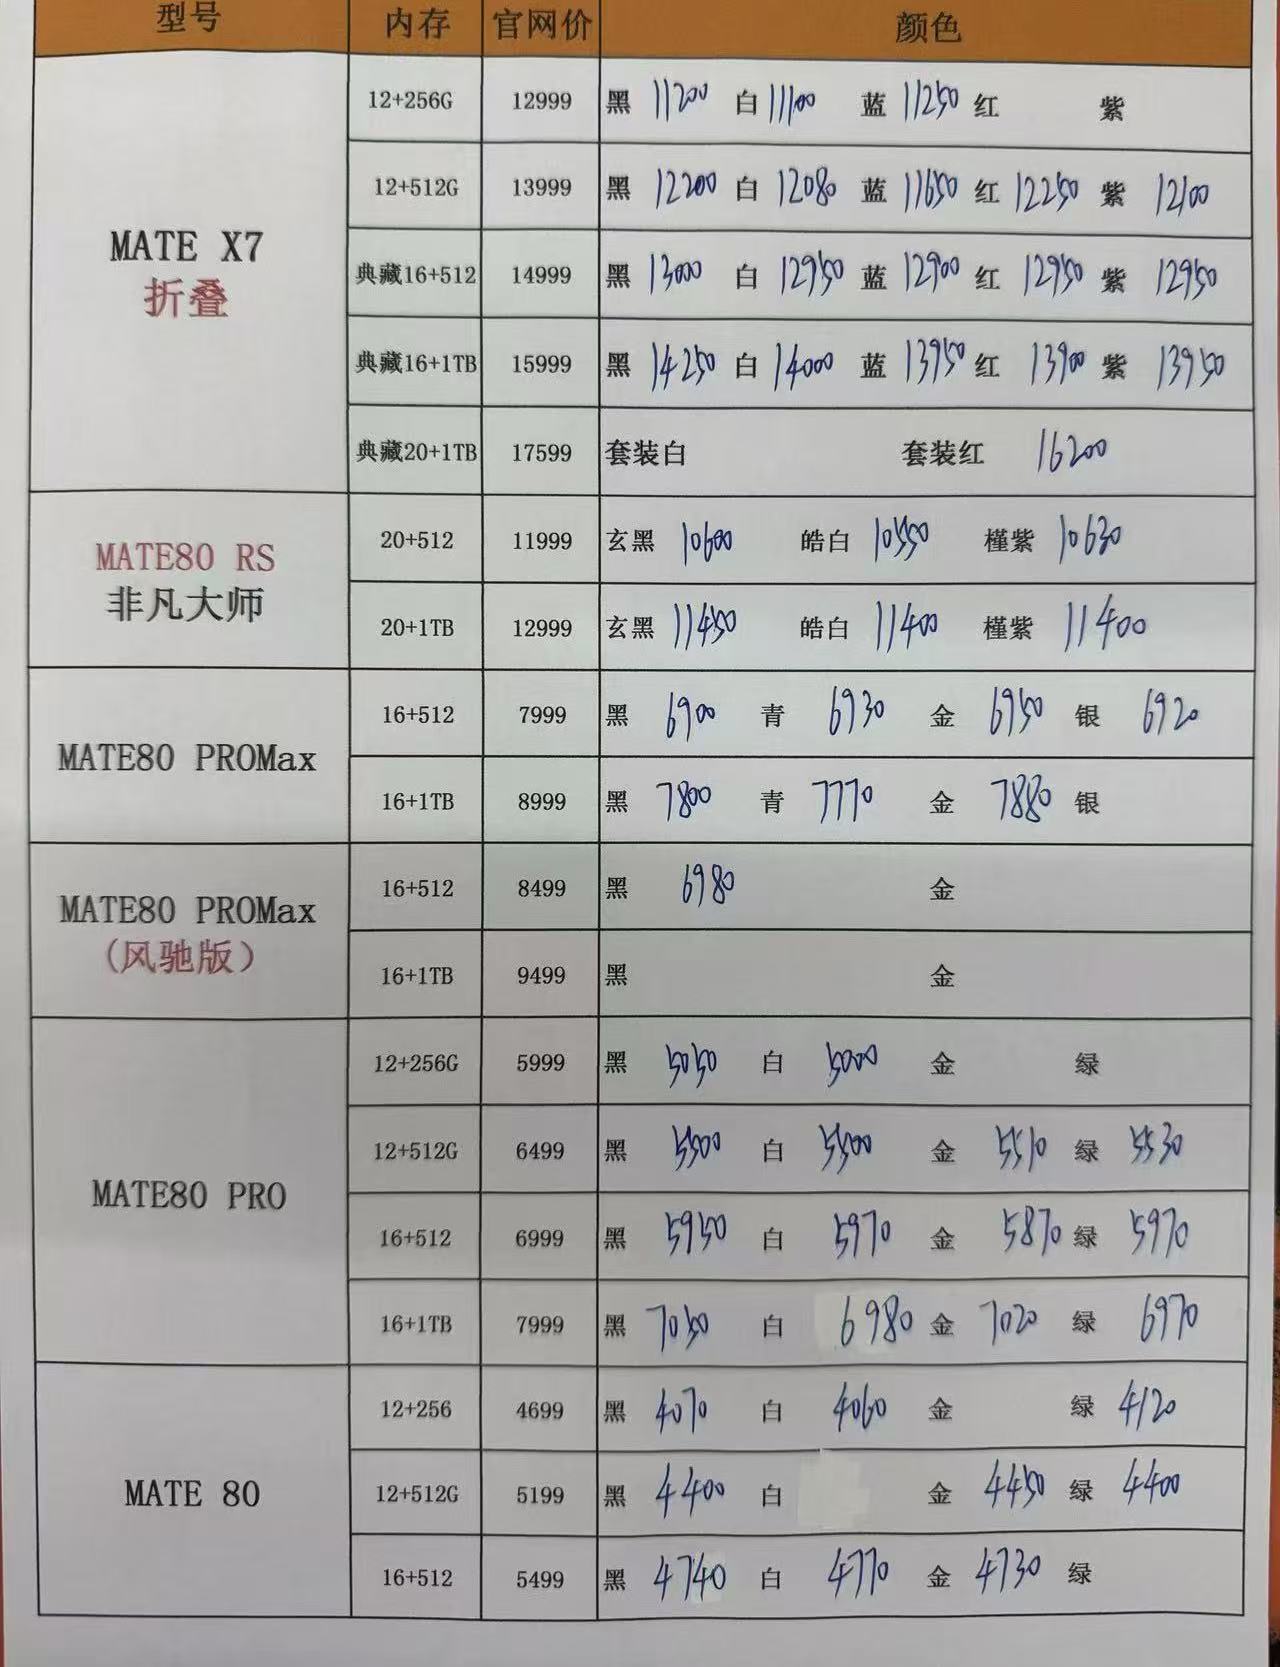 型号 内存 官网价 颜色
MATE X7
折叠
12+256G 12999 黑 11200 白 11100 蓝 11250 红 紫
12+512G 13999 黑 12200 白 12080 蓝 11650 红 12250 紫 12100
典藏16+512 14999 黑 13000 白 12950 蓝 12900 红 12950 紫 12950
典藏16+1TB 15999 黑 14250 白 14000 蓝 13950 红 13900 紫 13950
典藏20+1TB 17599 套装白 套装红 16200
MATE80 RS
非凡大师
20+512 11999 玄黑 10600 皓白 10550 槿紫 10630
20+1TB 12999 玄黑 11450 皓白 11400 槿紫 11400
MATE80 PROMax
16+512 7999 黑 6900 青 6930 金 6950 银 6920
16+1TB 8999 黑 7800 青 7770 金 7880 银
MATE80 PROMax
(风驰版)
16+512 8499 黑 6980 金
16+1TB 9499 黑 金
MATE80 PRO
12+256G 5999 黑 5050 白 5000 金 绿
12+512G 6499 黑 5500 白 5500 金 5510 绿 5530
16+512 6999 黑 5950 白 5970 金 5870 绿 5970
16+1TB 7999 黑 7050 白 6980 金 7020 绿 6970
MATE 80
12+256 4699 黑 4070 白 4060 金 绿 4120
12+512G 5199 黑 4400 白 金 4450 绿 4400
16+512 5499 黑 4740 白 4770 金 4730 绿